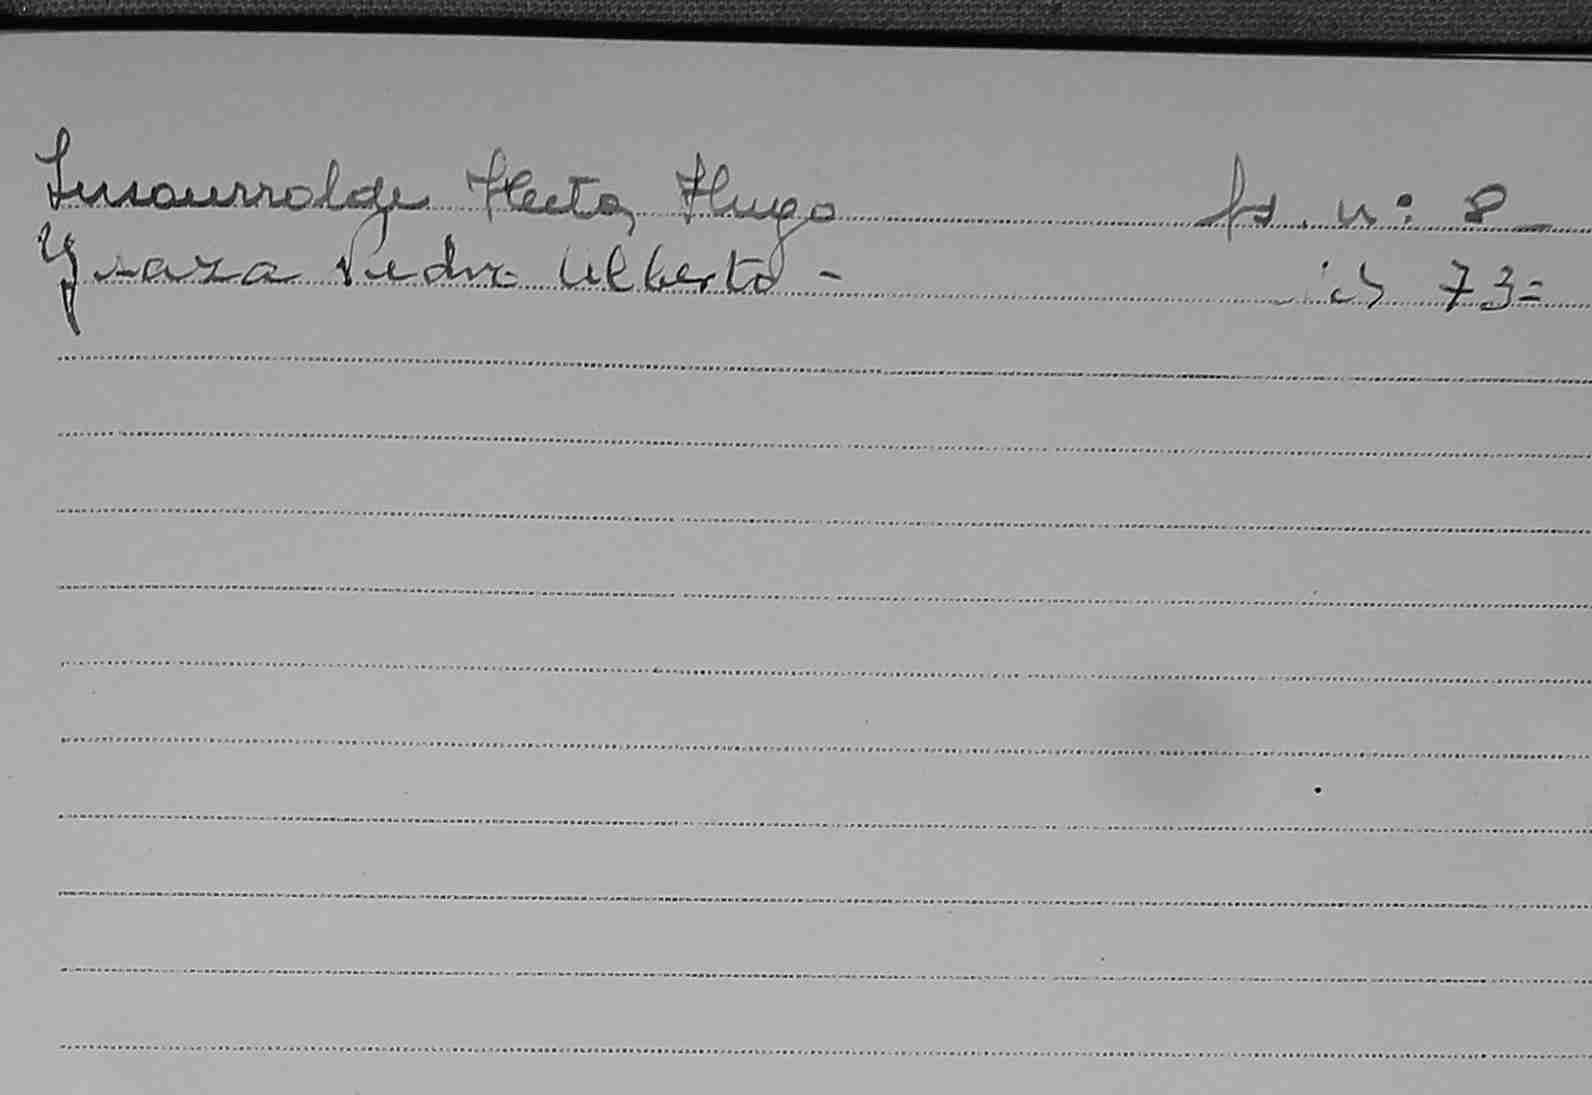 Insaurralde Hector Hugo fs. nº 8
Yraza Pedro Alberto - 73=